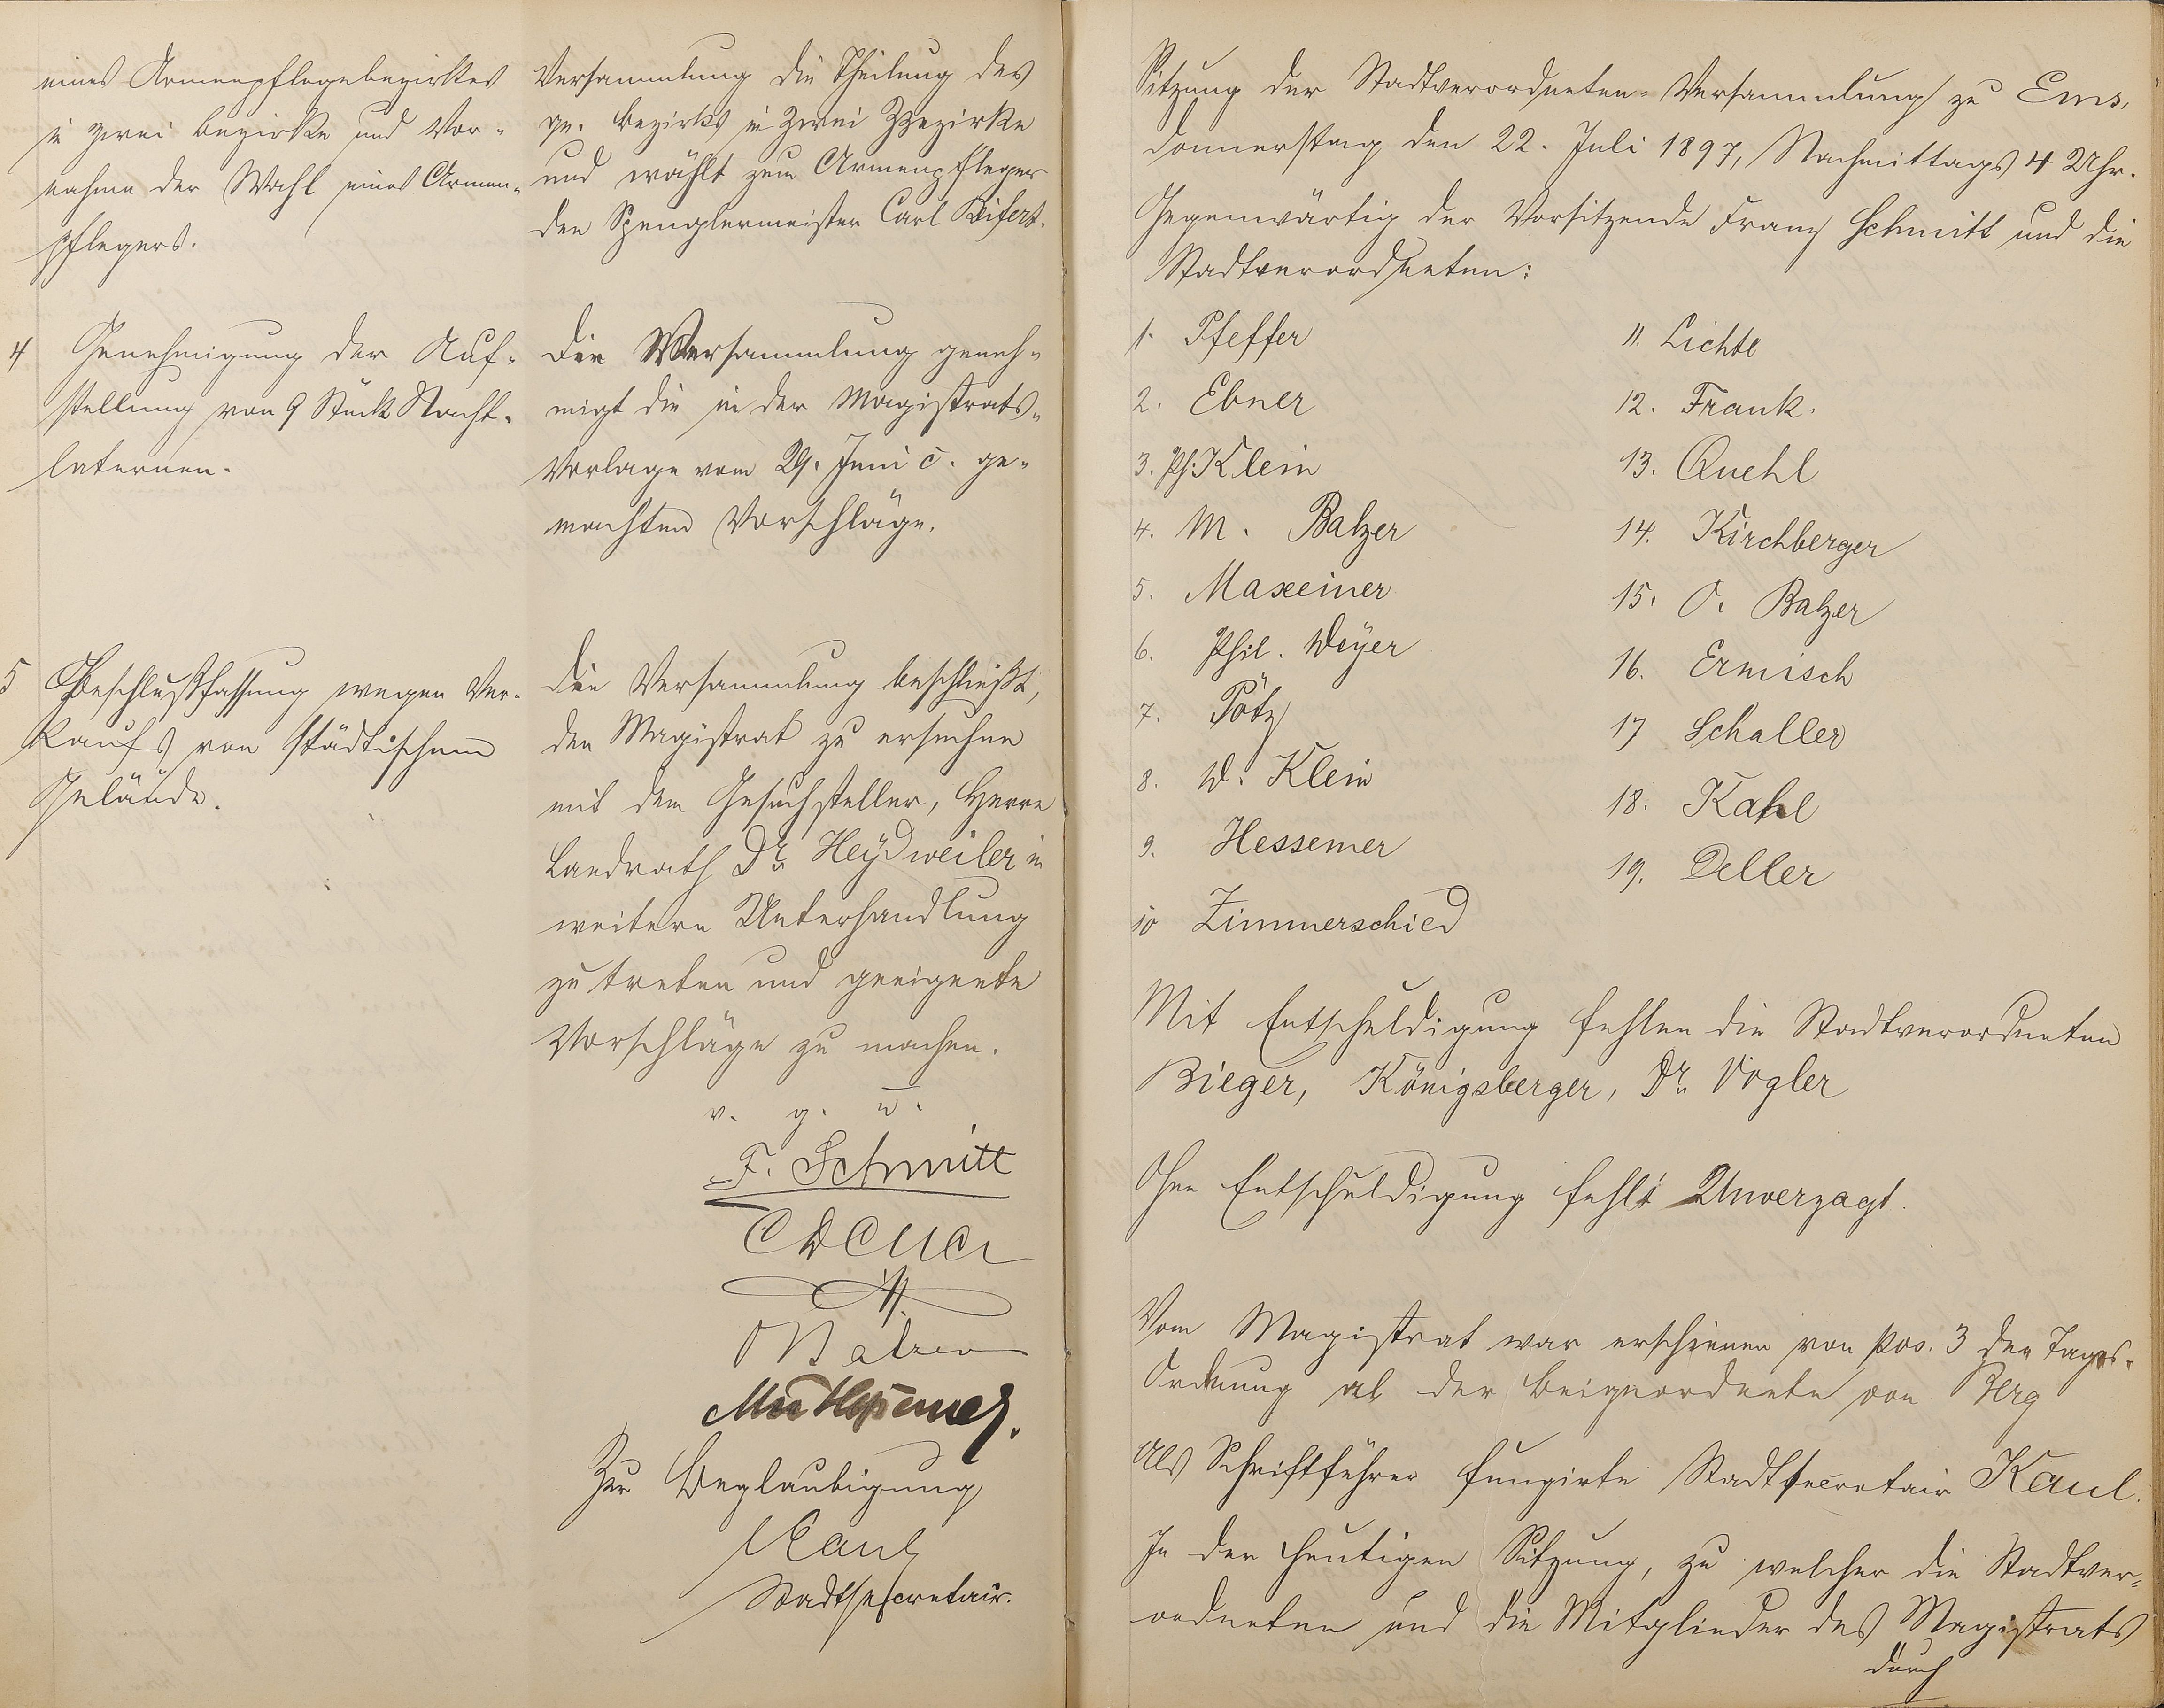 eines Armenpflegebezirkes
in zwei Bezirke und Vor-
nahme der Wahl eines Armen-
pflegers.
Versammlung die Theilung des
gen. Bezirks in zwei Bezirke
und wählt zum Armenpfleger
den Spenglermeister Carl Seifert.
4 Genehmigung der Auf-
stellung von 9 Stück Nacht-
laternen.
Die Versammlung geneh-
migt die in der Magistrats-
Vorlage vom 29. Juni c. ge-
machten Vorschläge.
5 Beschlußfassung wegen Ver-
kaufs von städtischem
Gelände.
Die Versammlung beschließt,
den Magistrat zu ersuchen
mit dem Gesuchsteller, Herrn
Landrath Dr. Heydweiler in
weitere Unterhandlung
zu treten und geeignete
Vorschläge zu machen.
v. g. u.
F. Schmitt
O Balzer
Hessemer.
Zur Beglaubigung
Kaul
Stadtsecretair.
Sitzung der Stadtverordneten-Versammlung zu Ems,
Donnerstag den 22. Juli 1897, Nachmittags 4 Uhr.
Gegenwärtig der Vorsitzende Franz Schmitt und die
Stadtverordneten:
1. Pfeffer
2. Ebner
3. Ph. Klein
4. M. Balzer
5. Maxeiner
6. Phil. Weyer
7. Pötz
8. W. Klein
9. Hessemer
10 Zimmerschied
11. Lichte
12. Frank.
13. Quehl
14. Kirchberger
15. O. Balzer
16. Ermisch
17 Schaller
18. Kahl
19. Deller
Mit Entschuldigung fehlen die Stadtverordneten
Bieger, Königsberger, Dr. Vogler
Ohne Entschuldigung fehlt Unverzagt.
Vom Magistrat war erschienen von Pos. 3 der Tages-
Ordnung ab der Beigeordnete von Berg
Als Schriftführer fungirte Stadtsecretair Kaul.
In der heutigen Sitzung, zu welcher die Stadtver-
ordneten und die Mitglieder des Magistrats
durch